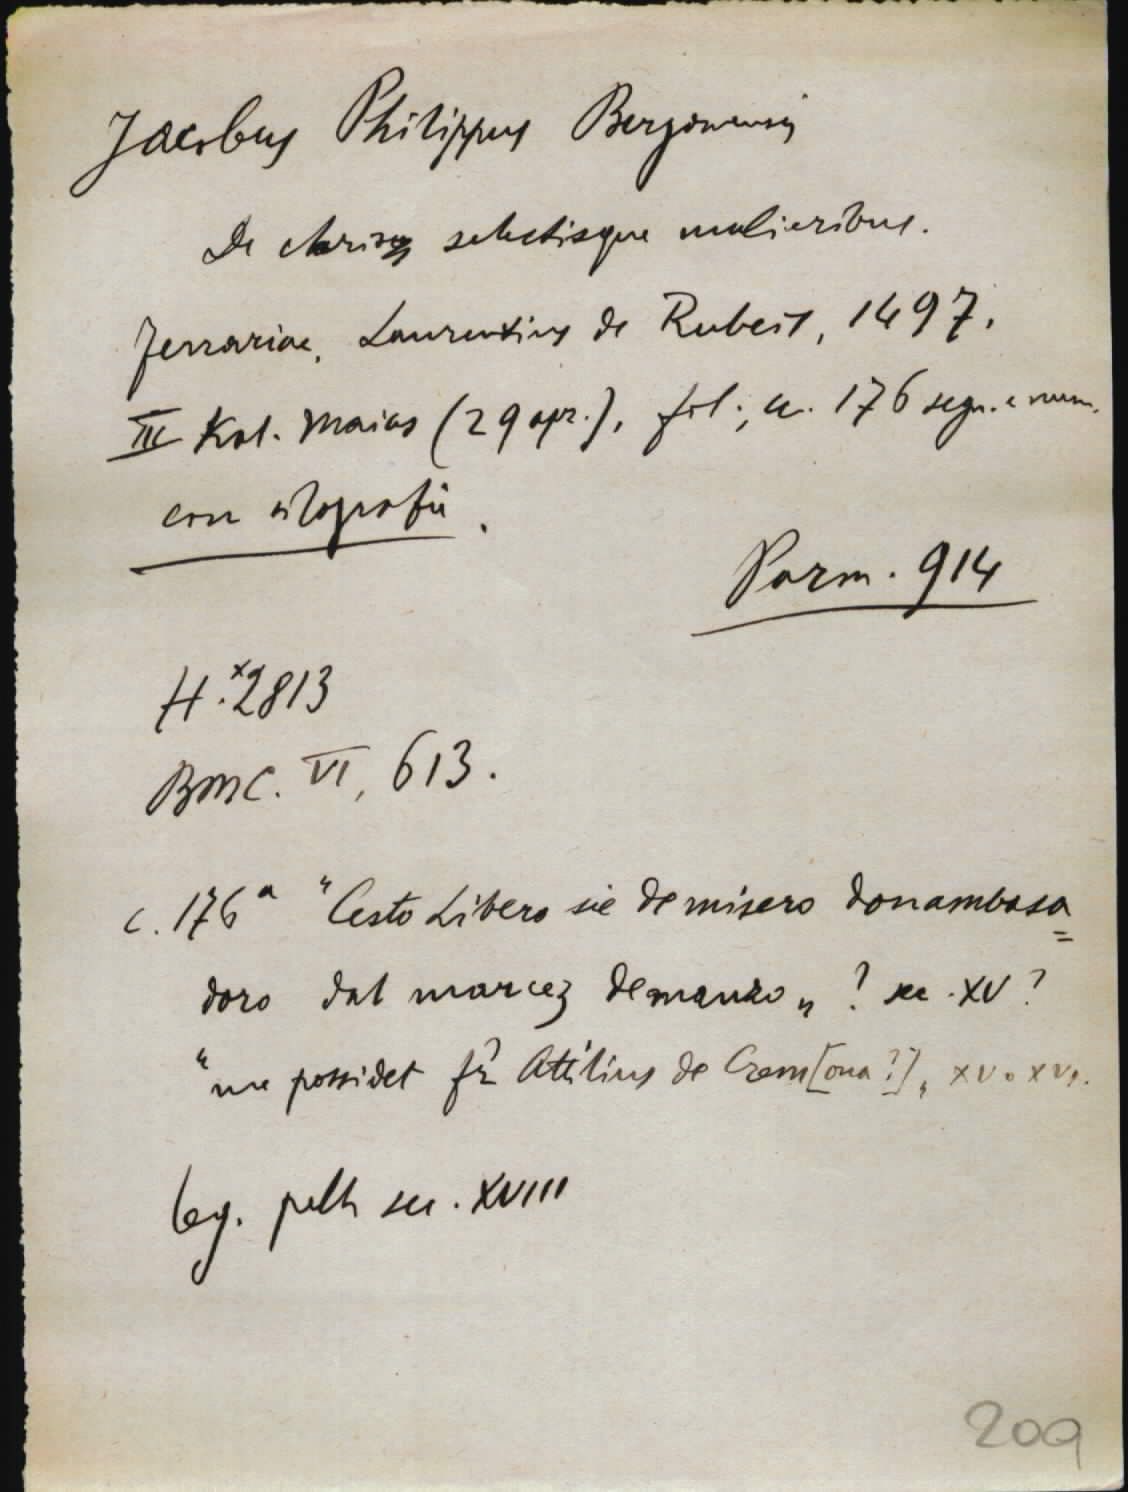 Jacobus Philippus Bergomensis
De claris selectisque mulieribus.
Ferrariae, Laurentius de Rubeis, 1497,
III Kal. Maias (29 apr.), fol., cc. 176 segn. e num.
con silografie.
Parm. 914
H.ˣ2813
BMC. VI, 613.
c. 176ᵃ "Cesto Libero sie de misero donambasa
doro dal marcez demanzo„ ? sec. XV?
"me possidet fr̃ Attilius de Crem[ona?]„ XV o XVI.
leg. pelle sec. XVIII
209